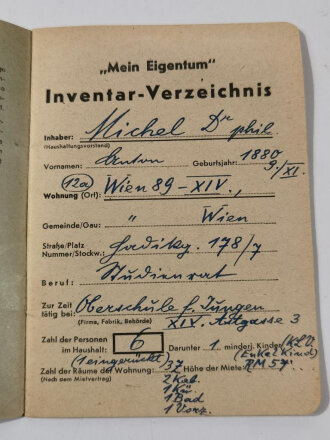 „Mein Eigentum“
Inventar-Verzeichnis
Inhaber: Michel Dr phil.
(Haushaltungsvorstand)
Vornamen: Anton Geburtsjahr: 1880
9./XI.
(12a)
Wohnung (Ort): Wien 89-XIV.,
Gemeinde/Gau: " Wien
Straße/Platz
Nummer/Stockw.: Hadikg. 178/7
Beruf: Studienrat
Zur Zeit
tätig bei: Oberschule f. Jungen
(Firma, Fabrik, Behörde) XIV. Astgasse 3
Zahl der Personen
im Haushalt: 6 Darunter 1 minderj. Kinder KLV.
(1 eingerückt) (Enkelkind)
Zahl der Räume der Wohnung: 3Z Höhe der Miete: RM 57.-
(Nach dem Mietvertrag) 2 Kab.
1 Kü
1 Bad
1 Vorz.